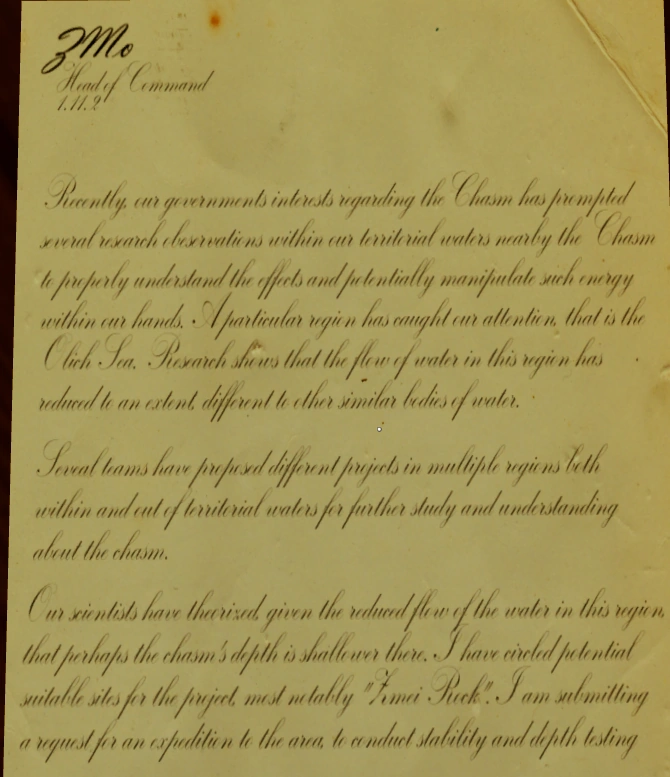 ZMo
Head of Command
1.11.2
Recently, our governments interests regarding the Chasm has prompted
several research observations within our territorial waters nearby the Chasm
to properly understand the effects and potentially manipulate such energy
within our hands. A particular region has caught our attention, that is the
Olich Sea. Research shows that the flow of water in this region has
reduced to an extent, different to other similar bodies of water.
Seveal teams have proposed different projects in multiple regions both
within and out of territorial waters for further study and understanding
about the chasm.
Our scientists have theorized, given the reduced flow of the water in this region,
that perhaps the chasm's depth is shallower there. I have circled potential
suitable sites for the project, most notably "Zmei Rock". I am submitting
a request for an expedition to the area, to conduct stability and depth testing